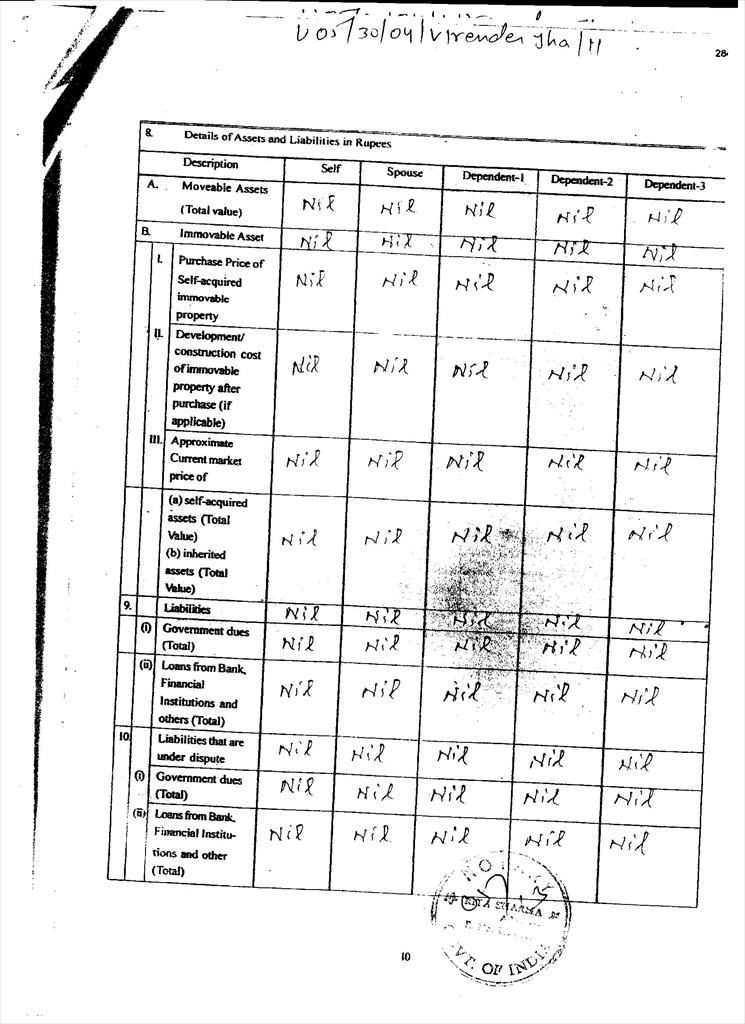 U05/30/04/Virender Jha/11
28
8. Details of Assets and Liabilities in Rupees
Description Self Spouse Dependent-1 Dependent-2 Dependent-3
A. Moveable Assets
(Total value) Nil Nil Nil Nil Nil
B. Immovable Asset Nil Nil Nil Nil Nil
I. Purchase Price of
Self-acquired Nil Nil Nil Nil Nil
immovable
property
II. Development/
construction cost
of immovable Nil Nil Nil Nil Nil
property after
purchase (if
applicable)
III. Approximate
Current market Nil Nil Nil Nil Nil
price of
(a) self-acquired
assets (Total
Value) Nil Nil Nil Nil Nil
(b) inherited
assets (Total
Value)
9. Liabilities Nil Nil Nil Nil Nil
(i) Government dues
(Total) Nil Nil Nil Nil Nil
(ii) Loans from Bank,
Financial Nil Nil Nil Nil Nil
Institutions and
others (Total)
10. Liabilities that are
under dispute Nil Nil Nil Nil Nil
(i) Government dues
(Total) Nil Nil Nil Nil Nil
(ii) Loans from Bank,
Financial Institu- Nil Nil Nil Nil Nil
tions and other
(Total)
SHARMA
OF INDIA
10